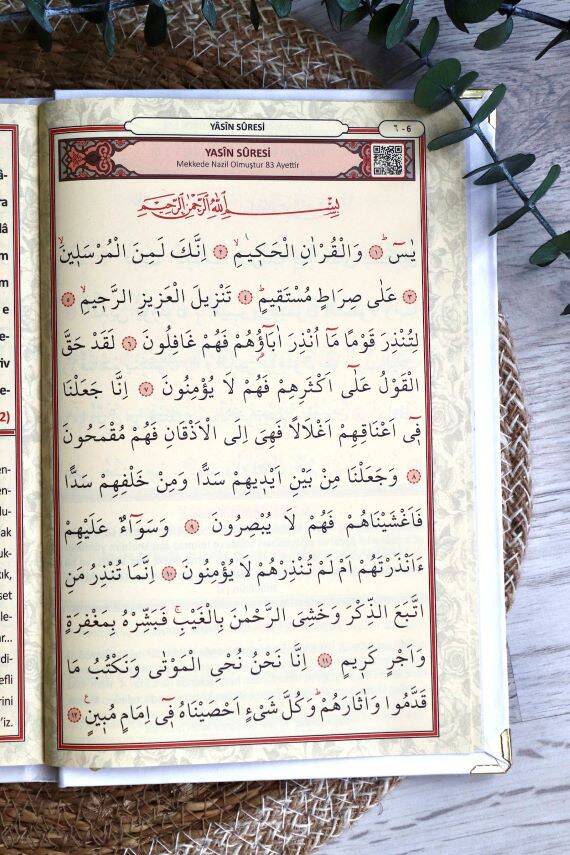 YÂSÎN SÛRESİ
٦ - 6
YASÎN SÛRESİ
Mekkede Nazil Olmuştur 83 Ayettir
بِسْمِ اللّٰهِ الرَّحْمٰنِ الرَّحِيمِ
يٰسٓ ۚ ﴿١﴾ وَالْقُرْاٰنِ الْحَكٖيمِۙ ﴿٢﴾ اِنَّكَ لَمِنَ الْمُرْسَلٖينَۙ
﴿٣﴾ عَلٰى صِرَاطٍ مُسْتَقٖيمٍؕ ﴿٤﴾ تَنْزٖيلَ الْعَزٖيزِ الرَّحٖيمِۙ ﴿٥﴾
لِتُنْذِرَ قَوْمًا مَٓا اُنْذِرَ اٰبَٓاؤُ۬هُمْ فَهُمْ غَافِلُونَ ﴿٦﴾ لَقَدْ حَقَّ
الْقَوْلُ عَلٰٓى اَكْثَرِهِمْ فَهُمْ لَا يُؤْمِنُونَ ﴿٧﴾ اِنَّا جَعَلْنَا
فٖٓى اَعْنَاقِهِمْ اَغْلَالًا فَهِىَ اِلَى الْاَذْقَانِ فَهُمْ مُقْمَحُونَ
﴿٨﴾ وَجَعَلْنَا مِنْ بَيْنِ اَيْدٖيهِمْ سَدًّا وَمِنْ خَلْفِهِمْ سَدًّا
فَاَغْشَيْنَاهُمْ فَهُمْ لَا يُبْصِرُونَ ﴿٩﴾ وَسَوَٓاءٌ عَلَيْهِمْ
ءَاَنْذَرْتَهُمْ اَمْ لَمْ تُنْذِرْهُمْ لَا يُؤْمِنُونَ ﴿١٠﴾ اِنَّمَا تُنْذِرُ مَنِ
اتَّبَعَ الذِّكْرَ وَخَشِىَ الرَّحْمٰنَ بِالْغَيْبِۚ فَبَشِّرْهُ بِمَغْفِرَةٍ
وَاَجْرٍ كَرٖيمٍ ﴿١١﴾ اِنَّا نَحْنُ نُحْيِ الْمَوْتٰى وَنَكْتُبُ مَا
قَدَّمُوا وَاٰثَارَهُمْؕ وَكُلَّ شَىْءٍ اَحْصَيْنَاهُ فٖٓى اِمَامٍ مُبٖينٍࣖ ﴿١٢﴾